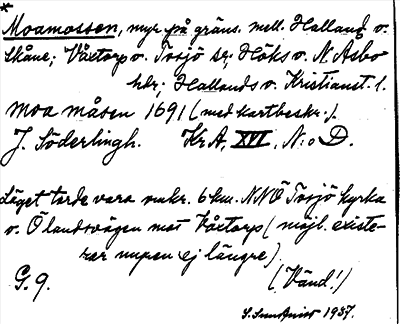 *
Moamossen, myr på gräns. mell. Halland o.
Skåne; Våxtorp o. Tosjö sn; Höks o. N. Åsbo
hdr; Hallands o. Kristianst. l.
Moa måsen 1691 (med kartbeskr.).
J. Söderlingh. Kr A, XVI, N:o D.
Läget torde vara omkr. 6 km. NNÖ Tosjö kyrka
o. Ö landsvägen mot Våxtorp (möjl. existe-
rar mysen ej längre).
G. 9. (Vänd!)
S. Sundqvist 1937.